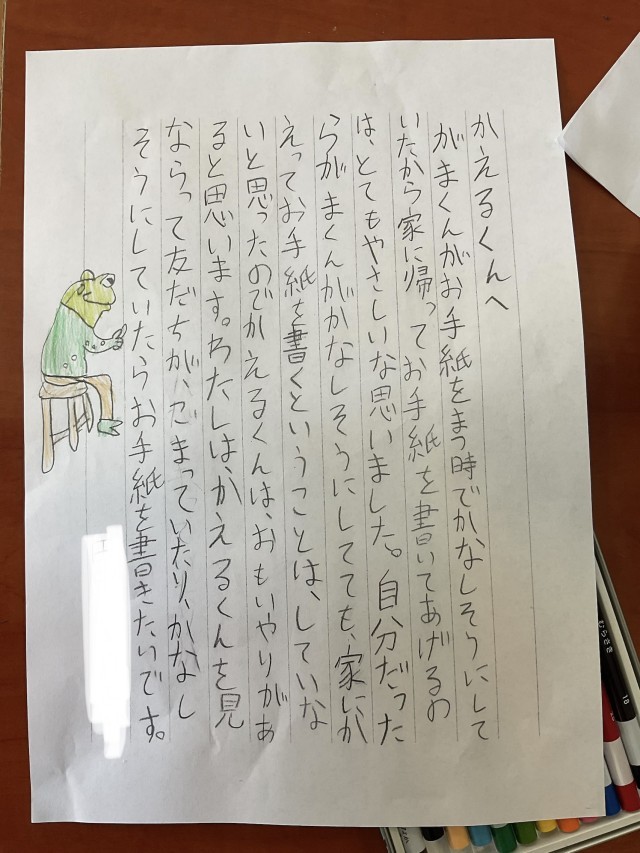 かえるくんへ
がまくんがお手紙をまつ時でかなしそうにして
いたから家に帰ってお手紙を書いてあげるの
は、とてもやさしいな思いました。自分だった
らがまくんがかなしそうにしてても、家にか
えってお手紙を書くということは、していな
いと思ったのでかえるくんは、おもいやりがあ
ると思います。わたしは、かえるくんを見
ならって友だちが、だまっていたり、かなし
そうにしていたらお手紙を書きたいです。
むらさき
10